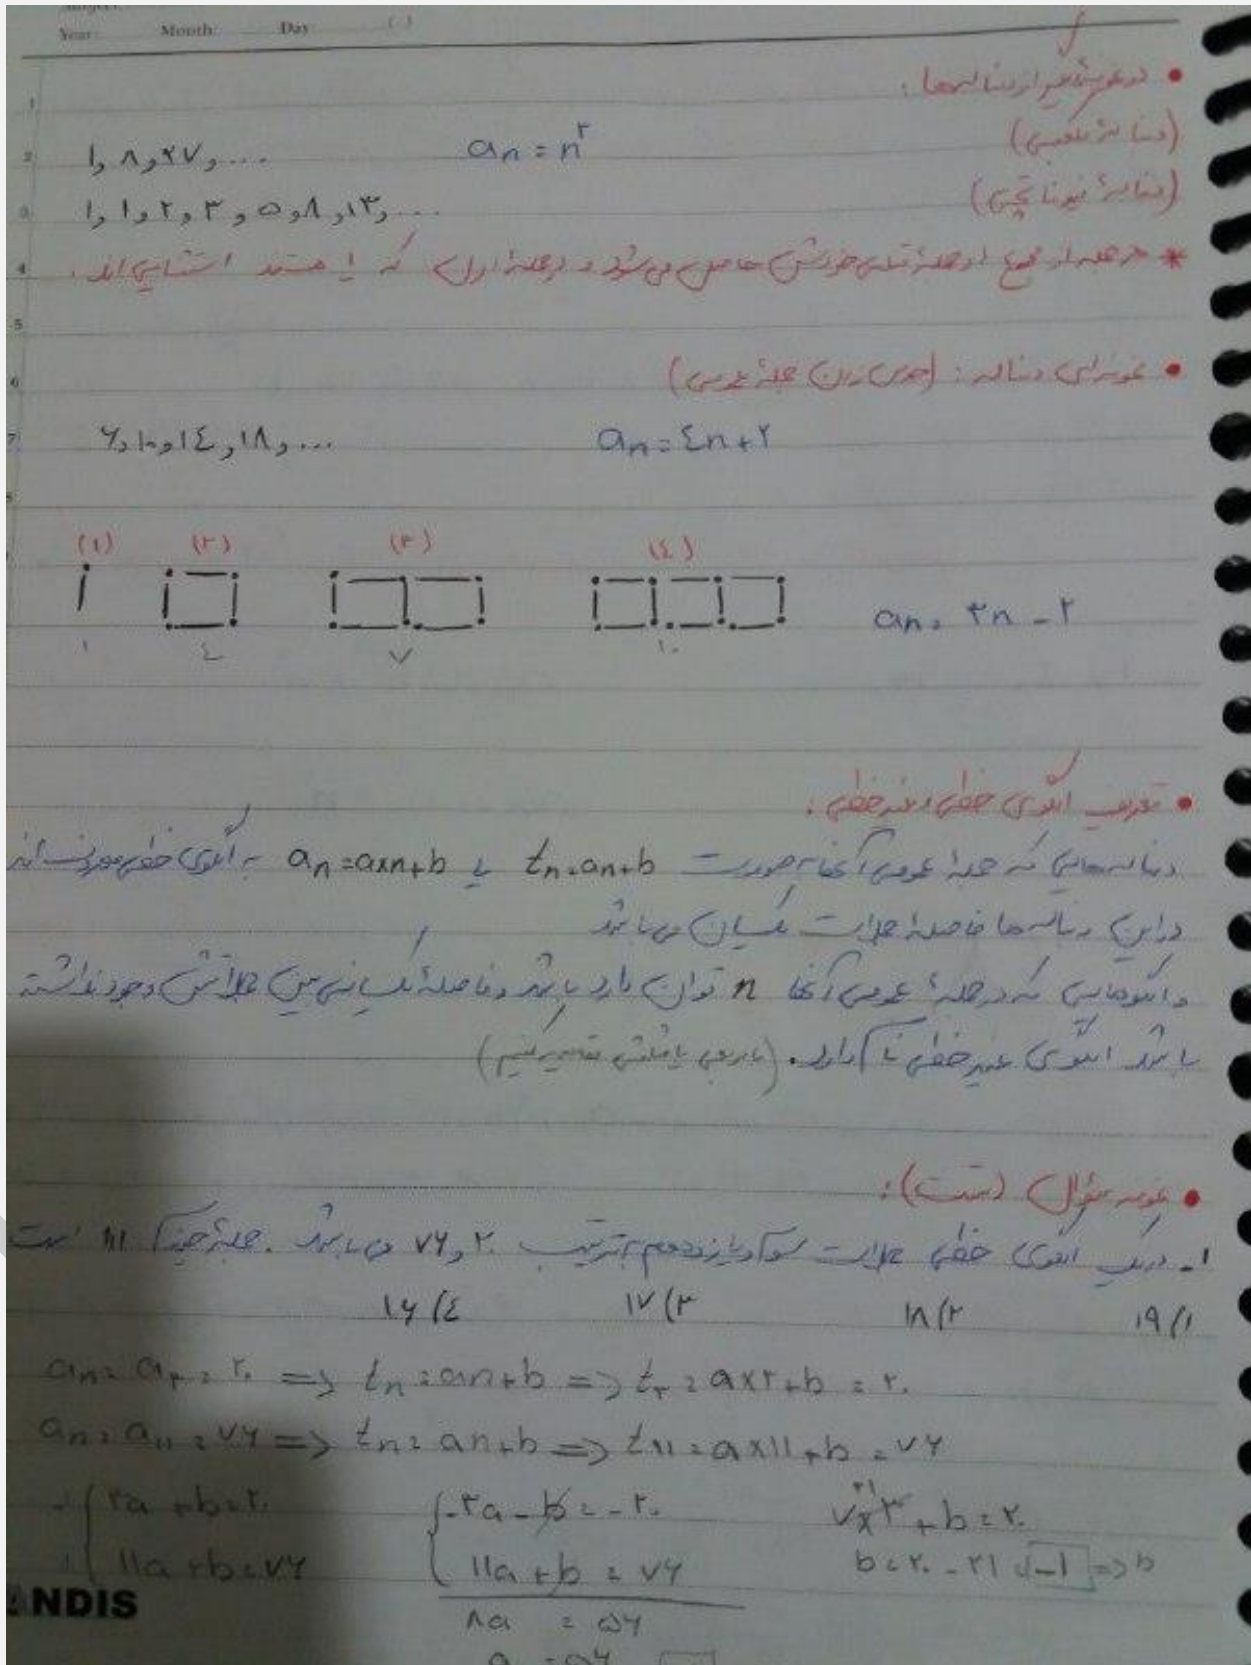 Year: Month: Day: ( )
• دو نمونه دیگر از دنباله‌ها:
۱, ۸, ۲۷, ... aₙ = n³ (دنبالهٔ مکعبی)
۱, ۱, ۲, ۳, ۵, ۸, ۱۳, ... (دنبالهٔ فیبوناچی)
* هر جمله از جمع دو جملهٔ قبلی خودش حاصل می‌شود و دو جملهٔ اول که ۱ هستند استثنایی‌اند.
• نمونه‌ای دنباله: (حدس زدن جملهٔ عمومی)
۶, ۱۰, ۱۴, ۱۸, ... aₙ = ۴n + ۲
(۱) (۲) (۳) (۴)
aₙ = ۳n - ۲
۱ ۴ ۷ ۱۰
• تعریف الگوی خطی و غیرخطی:
دنباله‌هایی که جملهٔ عمومی آنها به صورت tₙ = an+b یا aₙ = a×n+b به الگوی خطی معروف‌اند
در این دنباله‌ها فاصلهٔ جملات یکسان می‌باشد
و الگوهایی که در جملهٔ عمومی آنها n توان دارد باشد و فاصلهٔ یکسانی بین جملاتش وجود نداشته
باشد الگوی غیرخطی نام دارد.
• نمونه سؤال (تست):
۱- در یک الگوی خطی جملات سوم و یازدهم به ترتیب ۲۰ و ۷۶ می‌باشد. جملهٔ چندم ۱۱۱ است
۱) ۱۹ ۲) ۱۸ ۳) ۱۷ ۴) ۱۶
aₙ = a₃ = ۲۰ => tₙ = an+b => t₃ = a×۳+b = ۲۰
aₙ = a₁₁ = ۷۶ => tₙ = an+b => t₁₁ = a×۱۱+b = ۷۶
۳a + b = ۲۰ -۳a - b = -۲۰ ۷×۳ + b = ۲۰
۱۱a + b = ۷۶ ۱۱a + b = ۷۶ b = ۲۰ - ۲۱ = -۱ => b
۸a = ۵۶
ANDIS